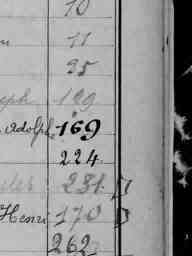 10
11
25
eph 129
Adolphe 169
224
les 231
Henri 170
262